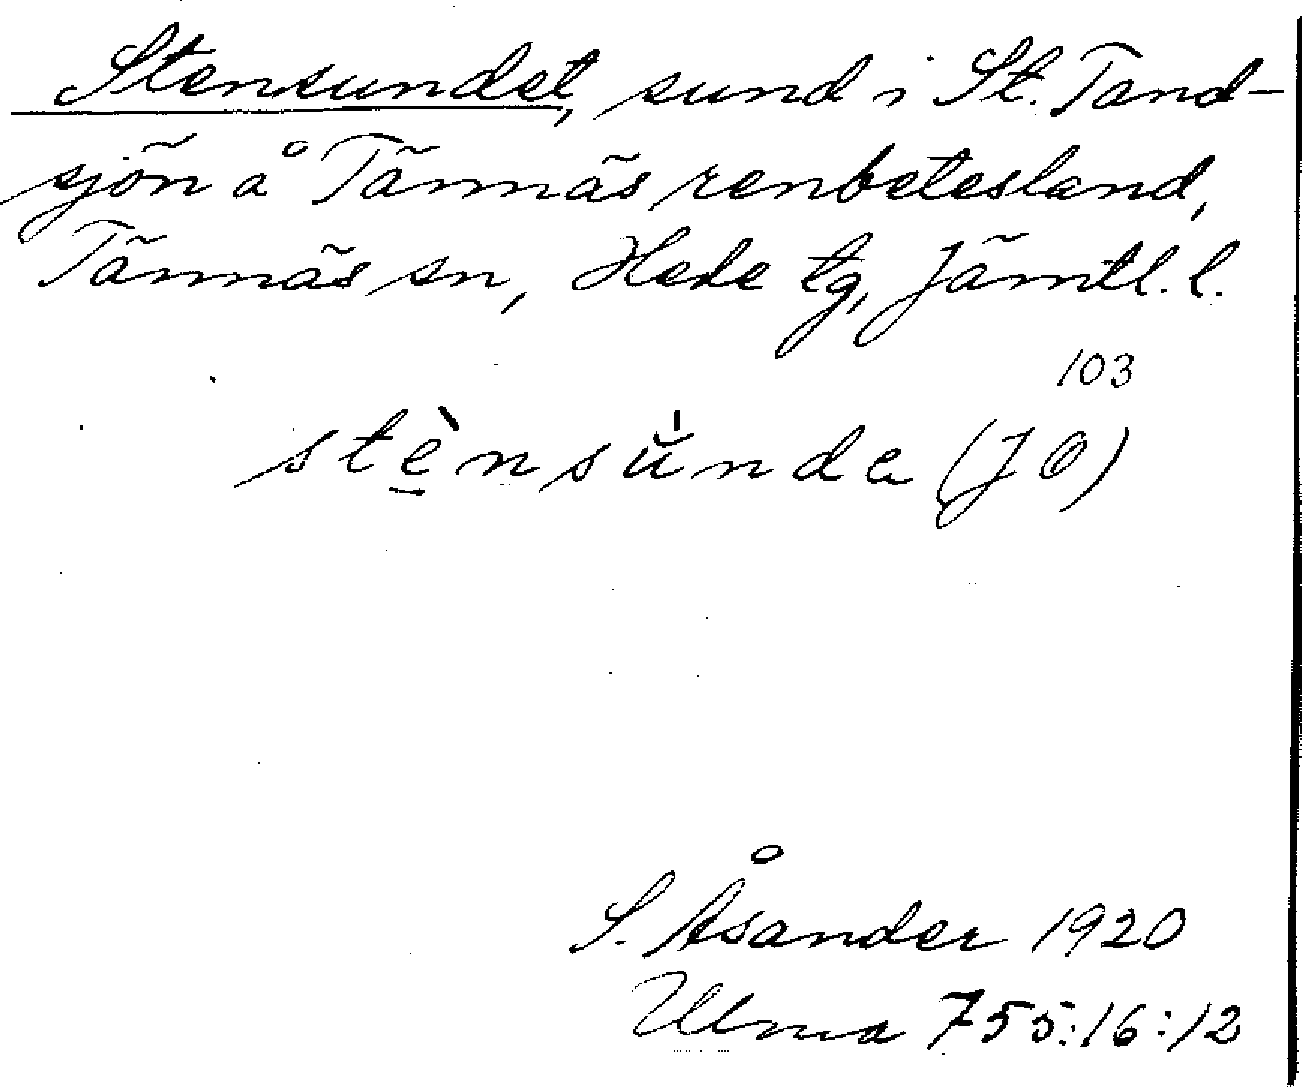 Stensundet, sund i St. Tand-
sjön å Tännäs renbetesland,
Tännäs sn, Hede tg, Jämtl. l.
103
stè̱nsu̍nda (JÖ)
S. Åsander 1920
Ulma 755:16:12